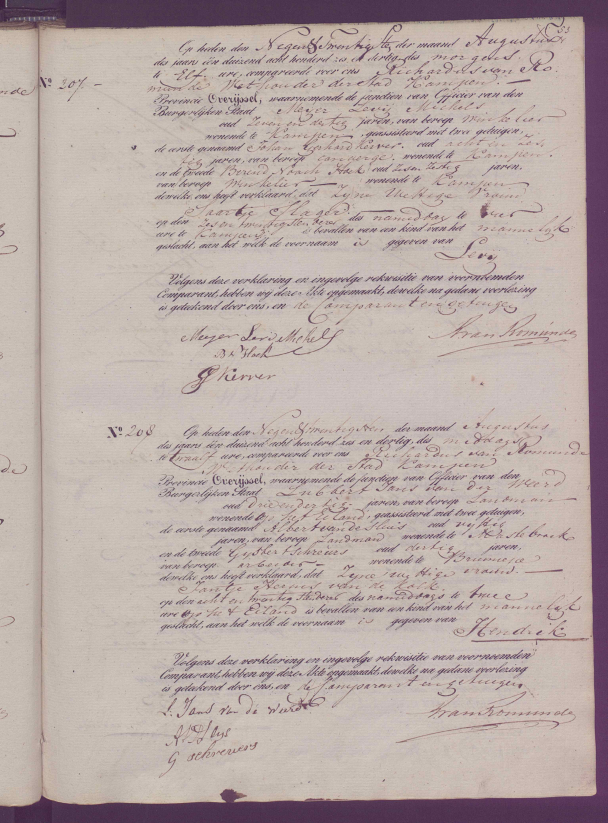 53
Op heden den Negen & twentigste der maand Augustus
des jaars één duizend acht honderd zes en dertig, des morgens
te Elf ure, compareerde voor ons Richardus van Ro-
munde Wethouder der stad Kampen
Provincie Overijssel, waarnemende de functien van Officier van den
Burgerlijken Staat Meyer Levi Michels
oud Zeven en dertig jaren, van beroep Winkelier
wonende te Kampen geassisteerd met twee getuigen,
de eerste genaamd Johan Kerver oud
jaren, van beroep wonende te Kampen
en de tweede Berend Hoek oud jaren,
van beroep Winkelier wonende te Kampen
dewelke ons heeft verklaard, dat Zyne Wettige Vrouw
Saartje Slager
op den Zes en twentigsten dezer des namiddag te vier
ure te Kampen is bevallen van een kind van het mannelijk
geslacht, aan het welk de voornaam is gegeven van
Levi
Volgens deze verklaring en ingevolge rekwisitie van voornoemden
Comparant, hebben wij deze Akte opgemaakt, dewelke na gedane voorlezing
is geteekend door ons, en de Comparant en getuigen
Meyer Levi Michels
Hoek
Kerver
van Romunde
N.º 207
N.º 208
Op heden den Negen & twentigsten der maand Augustus
des jaars één duizend acht honderd zes en dertig, des middags
te twaalf ure, compareerde voor ons Richardus van Romunde
Wethouder der Stad Kampen
Provincie Overijssel, waarnemende de functien van Officier van den
Burgerlijken Staat Lubbert Jans van der Weerd
oud drie en dertig jaren, van beroep Landman
wonende op het Eiland, geassisteerd met twee getuigen,
de eerste genaamd Albert van de Sluis oud vyftig
jaren, van beroep Landman wonende te
en de tweede Gysbert Schreurs oud dertig jaren,
van beroep arbeider wonende te Brunnepe
dewelke ons heeft verklaard, dat Zyne wettige vrouw
Jantje van de Kolk
op den acht en twentigsten dezer des namiddags te twee
ure op het Eiland is bevallen van een kind van het mannelijk
geslacht, aan het welk de voornaam is gegeven van
Hendrik
Volgens deze verklaring en ingevolge rekwisitie van voornoemden
Comparant, hebben wij deze Akte opgemaakt, dewelke na gedane voorlezing
is geteekend door ons, en de Comparant en getuigen
L. Jans van de weerd
G schreurs
van Romunde